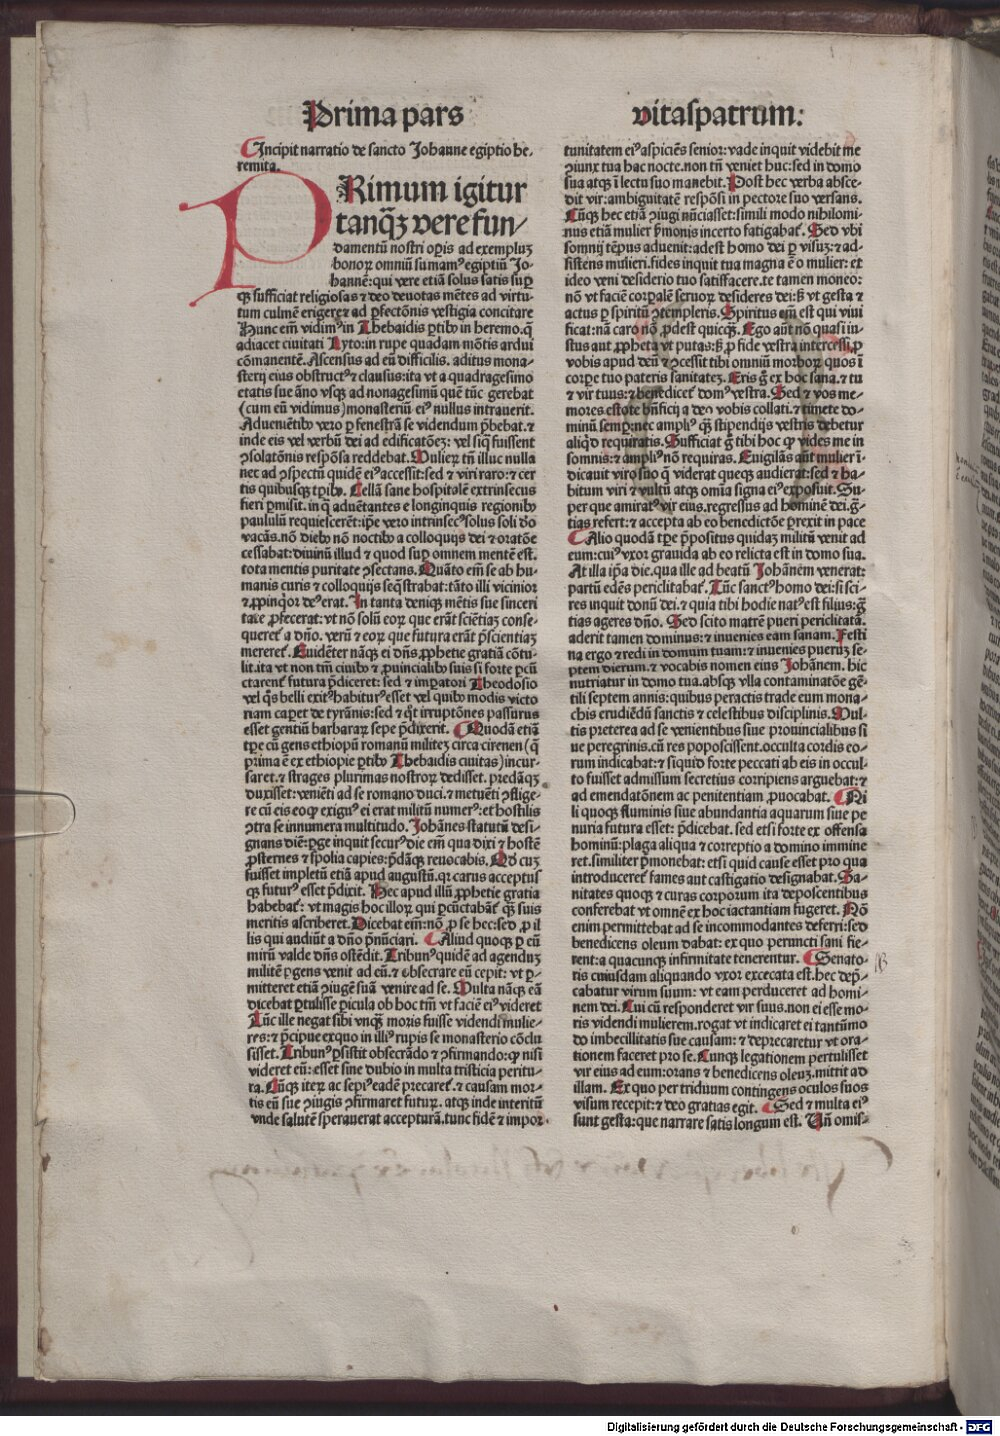 Prima pars
Incipit narratio de sancto Johanne egiptio he-
remita.
PRimum igitur
tanq̃ꝫ vere fun/
damentū nostri oꝑis ad exempluꝫ
bonoꝝ omniū sumamꝰ egiptiū Jo-
hannē: qui vere etiā solus satis suꝑ
qꝫ sufficiat religiosas ⁊ deo deuotas mētes ad virtu-
tum culmē erigere ⁊ ad ꝑfectōnis vestigia concitare
Hunc em̄ vidimꝰ in Thebaidis ꝑtibꝰ in heremo. q̄
adiacet ciuitati Lyto: in rupe quadam mōtis ardui
cōmanentē. Ascensus ad eū difficilis. aditus mona-
sterij eius obstructꝰ ⁊ clausus: ita vt a quadragesimo
etatis sue āno vsqꝫ ad nonagesimū quē tūc gerebat
(cum eū vidimus) monasteriū eiꝰ nullus intrauerit.
Aduenietibꝰ vero ꝑ fenestrā se videndum p̄bebat. ⁊
inde eis vel verbū dei ad edificatōeꝫ: vel siqͥ fuissent
ꝯsolatōnis respōsa reddebat. Mulier tn̄ illuc nulla
nec ad ꝯspectū quidē eiꝰ accessit: sed ⁊ viri raro: ⁊ cer
tis quibusqꝫ tꝑibꝰ. Cellā sane hospitalē extrinsecus
fieri ꝑmisit. in q̄ aduētantes e longinquis regionibꝰ
paululū requiescerēt: ip̄e vero intrinsecꝰ solus soli dō
vacās. nō diebꝰ nō noctibꝰ a colloquijs dei ⁊ oratōe
cessabat: diuinū illud ⁊ quod suꝑ omnem mentē est.
tota mentis puritate ꝯsectans. Quāto em̄ se ab hu-
manis curis ⁊ colloquijs seq̄strabat: tāto illi vicinior
⁊ ꝓpinqͥor deꝰ erat. In tanta deniqꝫ mētis sue sinceri
tate ꝓfecerat: vt nō solū eoꝝ que erāt sciētiaꝫ conse-
queret̄ a dño. verū ⁊ eoꝝ que futura erāt p̄scientiaꝫ
mereret̄. Euidēter nāqꝫ ei dñs ꝓphetie gratiā cōtu-
lit. ita vt non tm̄ ciuibꝰ ⁊ ꝓuincialibꝰ suis si forte ꝑcū
ctarent̄ futura p̄diceret: sed ⁊ imꝑatori Theodosio
vel qͥs belli exitꝰ habiturꝰ esset vel quibꝰ modis victo
riam caꝑet de tyrānis: sed ⁊ qͣs irruptōnes passurus
esset gentiū barbaraꝝ sepe p̄dixerit. Quodā etiā
tꝑe cū gens ethiopū romanū militeꝫ circa cirenen (q̄
prima ē ex ethiopie ꝑtibꝰ Thebaidis ciuitas) incur-
saret. ⁊ strages plurimas nostroꝝ dedisset. predāqꝫ
duxisset: veniēti ad se romano duci. ⁊ metuēti ꝯflige-
re cū eis eo qꝫ exiguꝰ ei erat militū numerꝰ: et hostilis
ꝯtra se innumera multitudo. Johānes statutū desi-
gnans diē: ꝑge inquit securꝰ die em̄ qua dixi ⁊ hostē
ꝓsternes ⁊ spolia capies: p̄dāqꝫ reuocabis. Qd̄ cuꝫ
fuisset impletū etiā apud augustū. qꝛ carus acceptus
qꝫ futurꝰ esset p̄dixit. Hec apud illū ꝓphetie gratia
habebat̄: vt magis hoc illoꝝ qui ꝑcūctabāt̄ qꝫ suis
meritis ascriberet. Dicebat em̄: nō ꝓ se hec: sed ꝓ il
lis qui audiūt a dño p̄nūciari. Aliud quoqꝫ ꝑ eū
mirū valde dñs ostēdit. Tribunꝰ quidē ad agenduꝫ
militē ꝑgens venit ad eū. ⁊ obsecrare eū cepit: vt ꝑ-
mitteret etiā ꝯiugē suā venire ad se. Multa nāqꝫ eā
dicebat ꝑtulisse ꝑicula ob hoc tm̄ vt faciē eiꝰ videret
Tūc ille negat sibi vnqꝫ moris fuisse videndi mulie-
res: ⁊ p̄cipue exquo in illiꝰ rupis se monasterio cōclu
sisset. Tribunꝰ ꝑsistit obsecrādo ⁊ ꝯfirmando: qꝙ nisi
videret eū: esset sine dubio in multa tristicia peritu-
ra. Cūqꝫ iteꝝ ac sepiꝰ eadē precaret̄. ⁊ causam mor-
tis eū sue ꝯiugis ꝯfirmaret futuꝝ. atqꝫ inde interitū
vnde salutē sperauerat acceptura. tunc fidē ⁊ impor-
vitaspatrum:
tunitatem eiꝰ aspiciēs senior: vade inquit videbit me
ꝯiunx tua hac nocte. non tn̄ veniet huc: sed in domo
sua atqꝫ ī lectu suo manebit. Post hec verba absce-
dit vir: ambiguitatē respōsi in pectore suo versans.
Cūqꝫ hec etiā ꝯiugi nūciasset: simili modo nihilomi-
nus etiā mulier ꝟmonis incerto fatigabat̄. Sed vbi
somnij tēpus aduenit: adest homo dei ꝑ visuꝫ: ⁊ ad-
sistens mulieri. fides inquit tua magna ē o mulier: et
ideo veni desiderio tuo satisfacere. te tamen moneo:
nō vt faciē corꝑalē seruoꝝ desideres dei: sꝫ vt gesta ⁊
actus ꝑ spiritū ꝯtempleris. Spiritus em̄ est qui viui
ficat: nā caro nō ꝓdest quicqꝫ. Ego aūt nō quasi iu-
stus aut ꝓpheta vt putas: sꝫ ꝓ fide vestra intercessi ꝓ
vobis apud deū ⁊ ꝯcessit tibi omniū morboꝝ quos ī
corꝑe tuo pateris sanitateꝫ. Eris g̃ ex hoc sana. ⁊ tu
⁊ vir tuus: ⁊ benedicet̄ domꝰ vestra. Sed ⁊ vos me-
mores estote bn̄ficij a deo vobis collati. ⁊ timete do-
minū semꝑ: nec ampliꝰ qꝫ stipendijs vestris debetur
aliqͥd requiratis. Sufficiat g̃ tibi hoc qꝙ vides me in
somnis: ⁊ ampliꝰ nō requiras. Euigilās aūt mulier ī
dicauit viro suo q̄ viderat queqꝫ audierat: sed ⁊ ha-
bitum viri ⁊ vultū atqꝫ omīa signa eiꝰ exposuit. Su-
per que amiratꝰ vir eius. regressus ad hominē dei. g̃-
tias refert: ⁊ accepta ab eo benedictōe ꝑrexit in pace
Alio quodā tꝑe p̄positus quidaꝫ militū venit ad
eum: cuiꝰ vxor grauida ab eo relicta est in domo sua.
At illa ip̄a die. qua ille ad beatū Johānem venerat:
partū edēs periclitabat̄. Tūc sanctꝰ homo dei: si sci-
res inquit donū dei. ⁊ quia tibi hodie natꝰ est filius: g̃
tias ageres dño. Sed scito matrē pueri periclitatā.
aderit tamen dominus: ⁊ inuenies eam sanam. Festi
na ergo ⁊ redi in domum tuam: ⁊ inuenies pueruꝫ se-
ptem dierum. ⁊ vocabis nomen eius Johānem. hic
nutriatur in domo tua. absqꝫ vlla contaminatōe gē-
tili septem annis: quibus peractis trade eum mona-
chis erudiēdū sanctis ⁊ celestibus disciplinis. Mul-
tis preterea ad se venientibus siue prouincialibus si
ue peregrinis. cū res poposcissent. occulta cordis eo-
rum indicabat: ⁊ si quid forte peccati ab eis in occul-
to fuisset admissum secretius corripiens arguebat: ⁊
ad emendatōnem ac penitentiam ꝓuocabat. Ni
li quoqꝫ fluminis siue abundantia aquarum siue pe
nuria futura esset: p̄dicebat. sed etsi forte ex offensa
hominū: plaga aliqua ⁊ correptio a domino immine
ret. similiter p̄monebat: etsi quid cause esset pro qua
introduceret̄ fames aut castigatio designabat. Sa-
nitates quoqꝫ ⁊ curas corporum ita deposcentibus
conferebat vt omnē ex hoc iactantiam fugeret. Nō
enim permittebat ad se incommodantes deferri: sed
benedicens oleum dabat: ex quo peruncti sani fie-
rent: a quacunqꝫ infirmitate tenerentur. Senato-
ris cuiusdam aliquando vxor excecata est. hec dep̄-
cabatur virum suum: vt eam perduceret ad homi-
nem dei. Cui cū responderet vir suus. non ei esse mo-
ris videndi mulierem. rogat vt indicaret ei tantūmo
do imbecillitatis sue causam: ⁊ deprecaretur vt ora-
tionem faceret pro se. Cunqꝫ legationem pertulisset
vir eius ad eum: orans ⁊ benedicens oleuꝫ. mittit ad
illam. Ex quo per triduum contingens oculos suos
visum recepit: ⁊ deo gratias egit. Sed ⁊ multa eiꝰ
sunt gesta: que narrare satis longum est. Vn̄ omis-
Digitalisierung gefördert durch die Deutsche Forschungsgemeinschaft - DFG